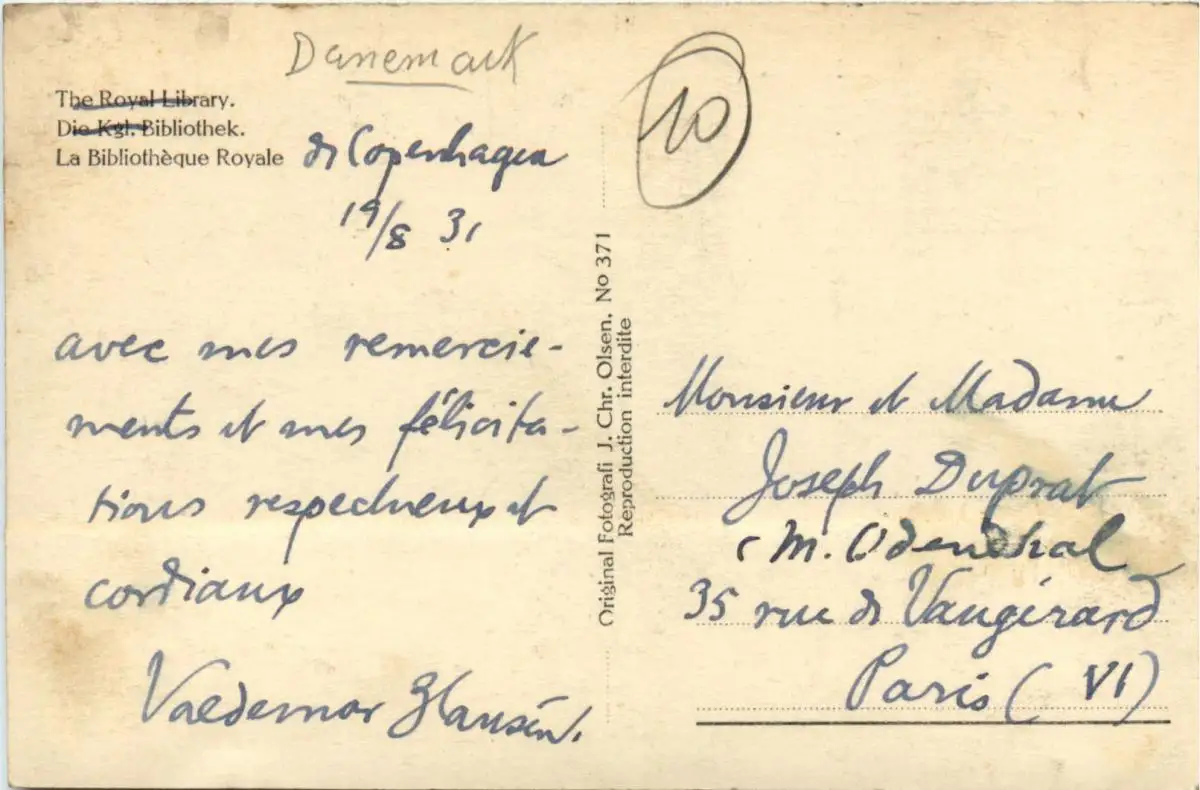 Danemark
The Royal Library.
Die Kgl. Bibliothek.
La Bibliothèque Royale de Copenhagen
19/8 31
avec mes remercie-
ments et mes félicita-
tions respectueux et
cordiaux
Valdemar Hansen.
Original Fotografi J. Chr. Olsen. No 371
Reproduction interdite
10
Monsieur et Madame
Joseph Duprat
M. Odendhal
35 rue de Vaugirard
Paris (VI)